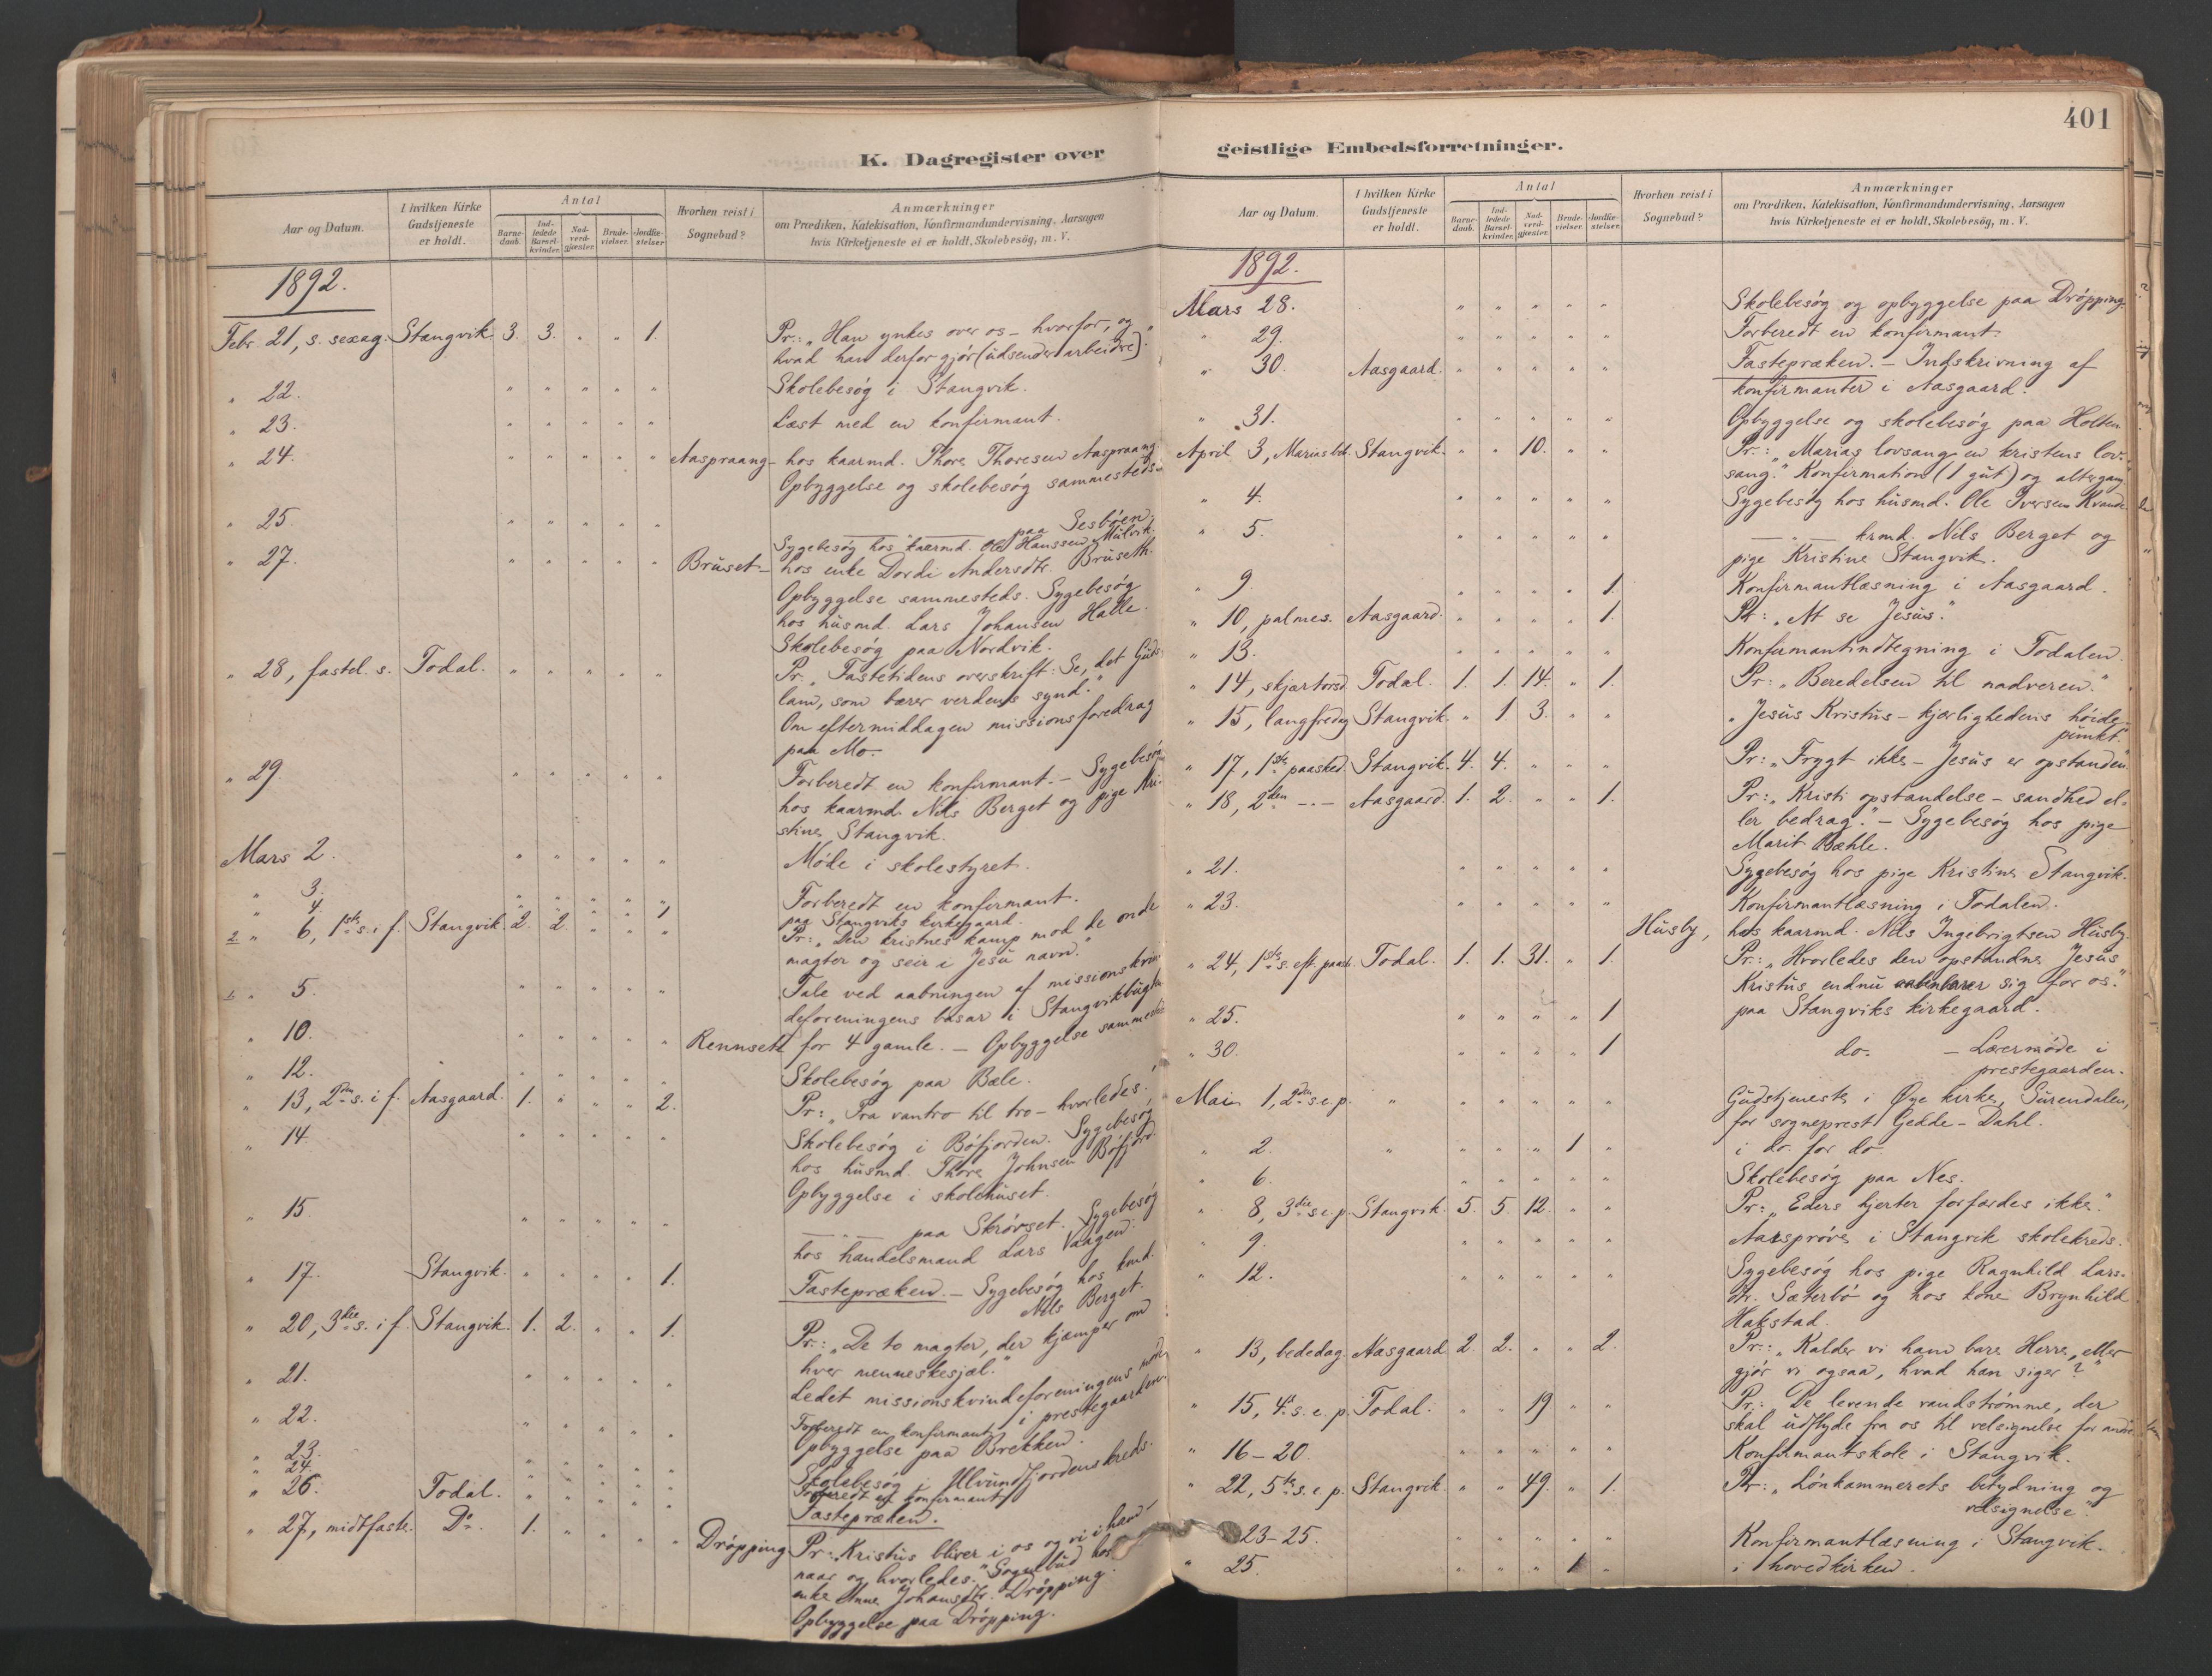 K. Dagregister over
Aar og Datum.
I hvilken Kirke Gudstjeneste er holdt.
Antal
Barne-daab.
Ind-ledede Barsel-kvinder.
Nad-verd-gjæster.
Brude-vielser.
Jordfæ-stelser
Hvorhen reist i Sognebud?
Anmærkninger
om Prædiken, Katekisation, Konfirmandundervisning, Aarsagen
hvis Kirketjeneste ei er holdt, Skolebesög, m. V.
1892.
Febr. 21, s. sexag. Stangvik. 3. 3. " " 1. Pr.: "Han ynkes over os – hvorfor, og
hvad han derfor gjör (udsender arbeidre)."
" 22. " " " " " Skolebesög i Stangvik.
" 23. " " " " " Læst med en konfirmant.
" 24. " " " " " Aaspraang – hos kaarmd. Thore Thoresen Aaspraang
Opbyggelse og skolebesög sammesteds.
" 25. " " " " " — " — paa Sesböen.
Sygebesög hos kaarmd. Ole Hanssen Mulvik.
" 27. " " " " " Bruset – hos enke Dordi Andersdtr. Bruseth.
Opbyggelse sammesteds. Sygebesög
hos husmd. Lars Johansen Halle.
Skolebesög paa Nordvik.
" 28, fastel. s. Todal. " " " " " Pr. "Fastetidens overskrift: Se, det Guds
lam, som bærer verdens synd."
Om eftermiddagen missionsforedrag
paa Mo.
" 29. " " " " " Forberedt en konfirmant. – Sygebesög
hos kaarmd. Nils Berget og pige Kri-
stine Stangvik.
Mars 2. " " " " " Möde i skolestyret.
" 3. " " " " " Forberedt en konfirmant.
" 4. " " " " 1 paa Stangviks kirkegaard.
2. " 6, 1ste s. i f. Stangvik. 2. 2 " " " Pr.: "Den kristnes kamp mod de onde
magter og seir i Jesu navn."
1. " 5. " " " " " Tale ved aabningen af missionskvin-
deforeningens basar i Stangvikbugten
" 10. " " " " " Rennseth for 4 gamle. – Opbyggelse sammesteds
" 12. " " " " " Skolebesög paa Bæle.
" 13, 2den s. i f. Aasgaard. 1. " " " 2. Pr.: "Fra vantro til tro – hvorledes?"
" 14. " " " " " Skolebesög i Böfjorden. Sygebesög
hos husmd. Thore Johnsen Böfjord.
Opbyggelse i skolehuset.
" 15. " " " " " — " — paa Skrövset. Sygebesög
hos handelsmand Lars Vaagen.
" 17. Stangvik. " " " " 1. Fastepræken. – Sygebesög hos kmd.
Nils Berget.
" 20, 3die s. i f. Stangvik. 1. 2. " " 1. Pr.: "De to magter, der kjæmper om
hver menneskesjæl."
" 21. " " " " " Ledet missionskvindeforeningens möde
i prestegaarden.
" 22. " " " " " Forberedt en konfirmant.
Opbyggelse paa Brekken.
" 23. " " " " " Skolebesög i Ulvundfjordens kreds.
" 24. " " " " " Forberedt en konfirmant.
" 26. Todal. " " " " " Fastepræken.
" 27, midtfaste. Do. 1. " " " " Dröpping. Pr.: Kristus bliver i os og vi i ham
naar og hvorledes." Sognebud hos
enke Anne Johansdtr. Dröpping.
Opbyggelse paa Dröpping.
401
geistlige Embedsforretninger.
Aar og Datum.
I hvilken Kirke Gudstjeneste er holdt.
Antal
Barne-daab.
Ind-ledede Barsel-kvinder.
Nad-verd-gjæster.
Brude-vielser.
Jordfæ-stelser.
Hvorhen reist i Sognebud?
Anmærkninger
om Prædiken, Katekisation, Konfirmandundervisning, Aarsagen
hvis Kirketjeneste ei er holdt, Skolebesög, m. V.
1892.
Mars 28. " " " " " Skolebesög og opbyggelse paa Dröpping.
" 29. " " " " " Forberedt en konfirmant.
" 30. Aasgaard. " " " " " Fastepræken. – Indskrivning af
konfirmanter i Aasgaard.
" 31. " " " " " Opbyggelse og skolebesög paa Holten.
April 3, Marias bd. Stangvik. " " 10. " " Pr.: "Marias lovsang en kristens lov-
sang." Konfirmation (1 gut) og altergang
" 4. " " " " " Sygebesög hos husmd. Ole Iversen Kvande
" 5. " " " " " — " — krmd. Nils Berget og
pige Kristine Stangvik.
" 9. " " " " 1. Konfirmantlæsning i Aasgaard.
" 10, palmes. Aasgaard. " " " " 1. Pr.: "At se Jesus."
" 13. " " " " " Konfirmantindtegning i Todalen.
" 14, skjærtorsd. Todal. 1. 1. 14. " 1. Pr.: "Beredelsen til nadveren."
" 15, langfredag Stangvik. " 1. 3. " " "Jesus Kristus – kjærlighedens höide-
punkt."
" 17, 1ste paasked. Stangvik. 4. 4. " " " Pr.: "Frygt ikke – Jesus er opstanden."
" 18, 2den — " — Aasgaard. 1. 2. " " 1. Pr.: "Kristi opstandelse – sandhed el-
ler bedrag." – Sygebesög hos pige
Marit Bæhle.
" 21. " " " " " Sygebesög hos pige Kristine Stangvik.
" 23. " " " " " Konfirmantlæsning i Todalen.
Husby, hos kaarmd. Nils Ingebrigtsen Husby.
" 24, 1ste s. eft. paask. Todal. 1. 1. 31. " 1. Pr.: "Hvorledes den opstandne Jesus
Kristus endnu aabenbarer sig for os."
" 25. " " " " 1 paa Stangviks kirkegaard.
" 30. " " " " 1 do. – Lærermöde i
prestegaarden.
Mai 1, 2den s. e. p. " " " " " " Gudstjeneste i Øye kirke, Surendalen,
for sogneprest Gedde-Dahl.
" 2. " " " " 1 " i do. for do.
" 6. " " " " " Skolebesög paa Nes.
" 8, 3die s. e. p. Stangvik. 5. 5. 12. " " Pr.: "Eders hjerter forfærdes ikke."
" 9. " " " " " Aarspröve i Stangvik skolekreds.
" 12. " " " " " Sygebesög hos pige Ragnhild Lars-
dtr. Sæterbö og hos kone Brynhild
Hakstad.
" 13, bededag. Aasgaard 2. 2. " " 2. Pr.: "Kalder vi ham bare Herre, eller
gjör vi ogsaa, hvad han siger?"
" 15, 4. s. e. p. Todal. " " 19 " " Pr.: "De levende vandströmme, der
skal udflyde fra os til velsignelse for andre
" 16–20. " " " " " Konfirmantskole i Stangvik.
" 22, 5te s. e. p. Stangvik. " " 49. " 1. Pr.: "Lönkammerets betydning og
velsignelse."
23–25. " " " " " Konfirmantlæsning i Stangvik.
" 25. " " " 1 " i hovedkirken.